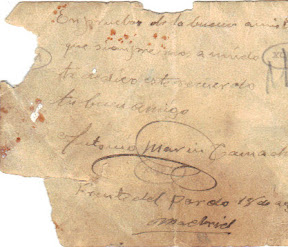 En prueba de la buena amis
que siempre nos a unido
te dedico este recuerdo
tu buen amigo
Antonio Marin Camach
Frente del Pardo 15 de
Madrid